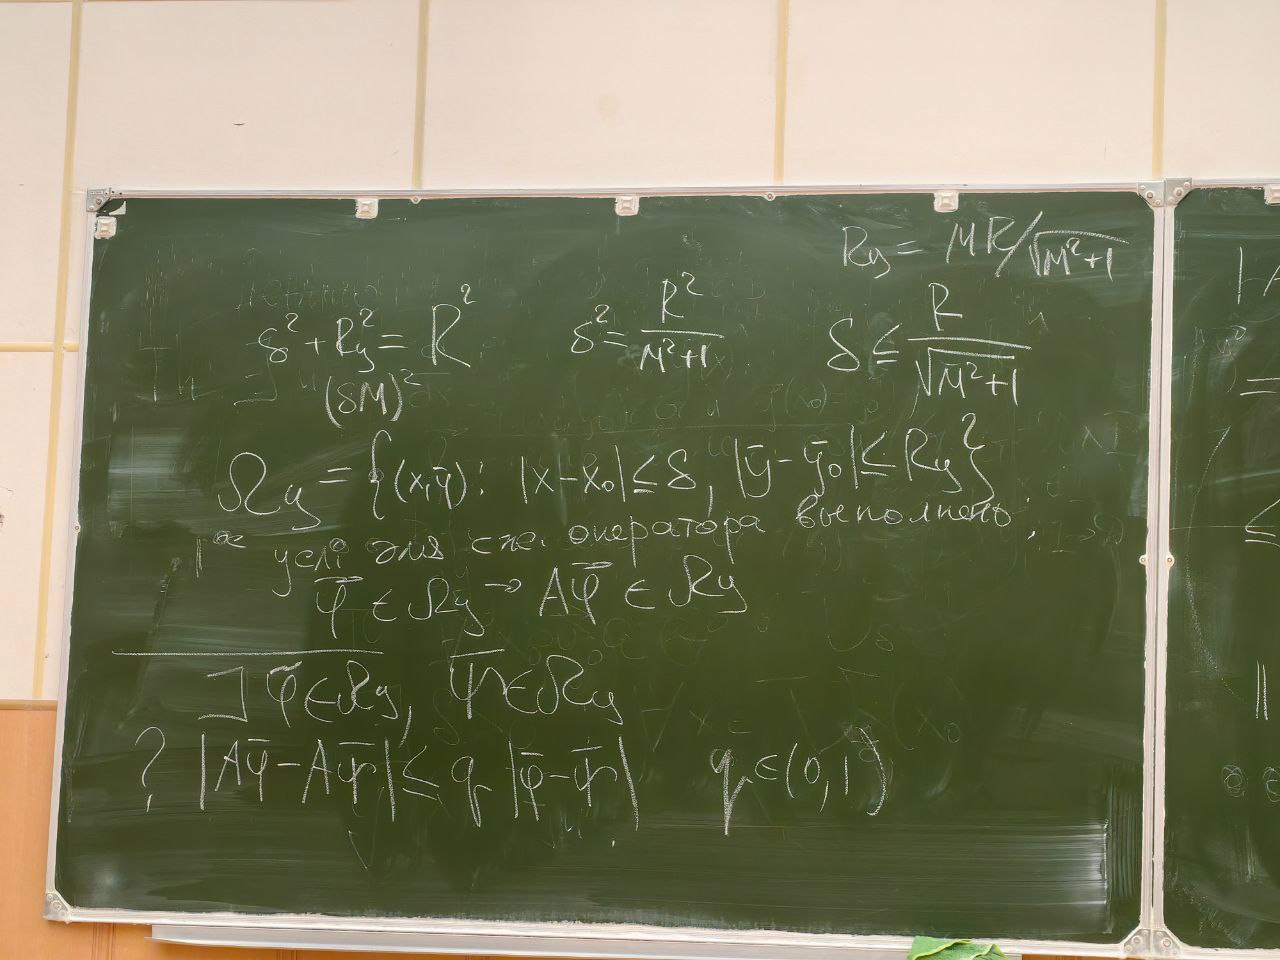 R_y = MR/√(M²+1)
δ² + R_y² = R² δ² = R²/(M²+1) δ ≤ R/√(M²+1)
(δM)²
Ω_y = {(x,ȳ): |x-x₀| ≤ δ, |ȳ-ȳ₀| ≤ R_y}
1ое усл. для сж. оператора выполнено:
φ̄ ∈ Ω_y → Aφ̄ ∈ Ω_y
] φ̄ ∈ Ω_y, ψ̄ ∈ Ω_y
? |Aφ̄ - Aψ̄| ≤ q |φ̄-ψ̄| q ∈ (0,1)